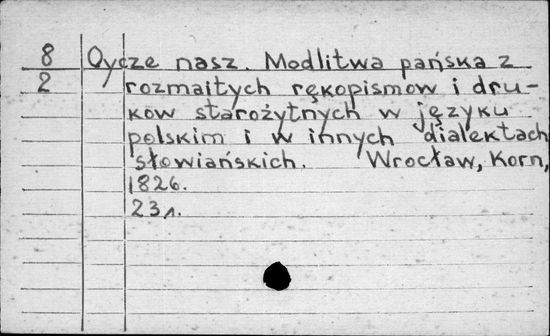 8 Oycze nasz. Modlitwa pańska z
2 rozmaitych rękopismow i dru-
kow starożytnych w języku
polskim i w innych dialektach
słowiańskich. Wrocław, Korn,
1826.
23 s.